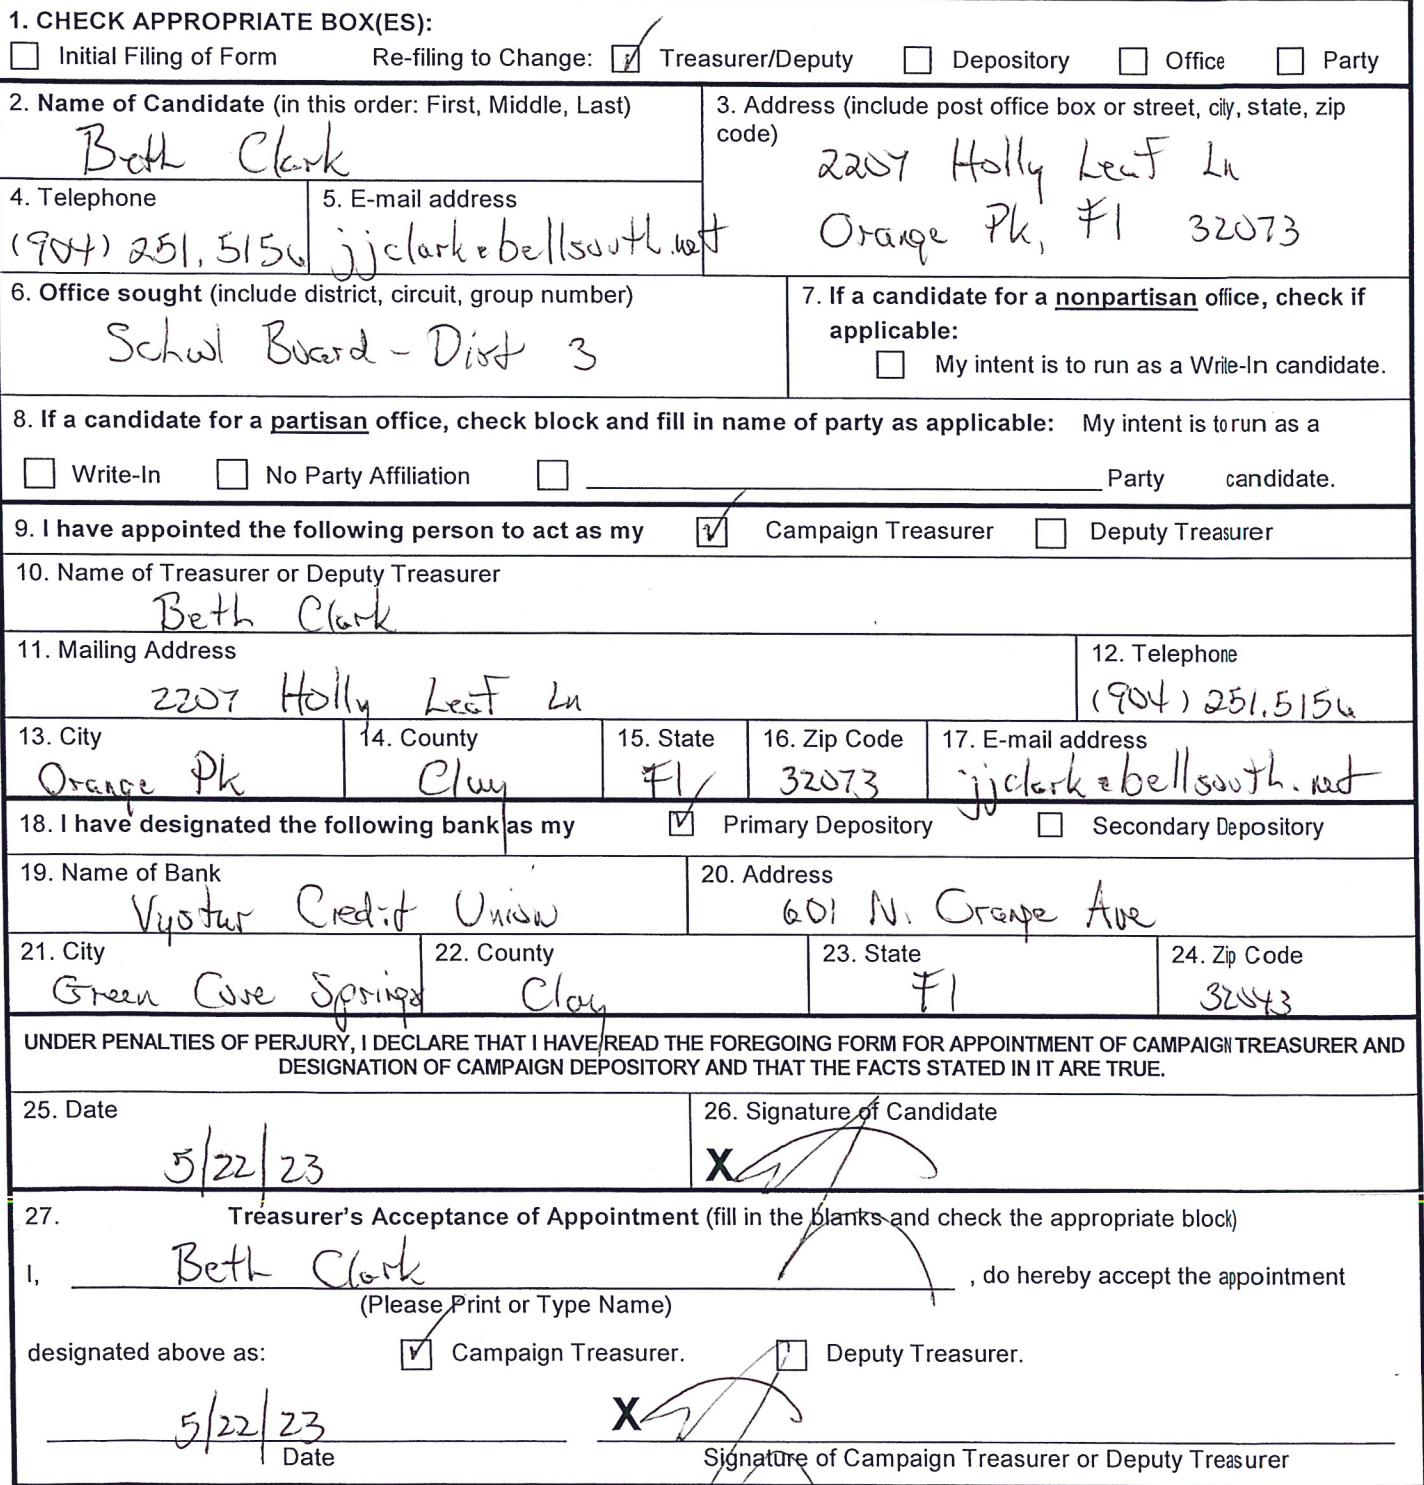 1. CHECK APPROPRIATE BOX(ES):
Initial Filing of Form Re-filing to Change: Treasurer/Deputy Depository Office Party
2. Name of Candidate (in this order: First, Middle, Last)
Beth Clark
3. Address (include post office box or street, city, state, zip
code)
2207 Holly Leaf Ln
Orange Pk, Fl 32073
4. Telephone
(904) 251.5156
5. E-mail address
jjclark@bellsouth.net
6. Office sought (include district, circuit, group number)
School Board - Dist 3
7. If a candidate for a nonpartisan office, check if
applicable:
My intent is to run as a Write-In candidate.
8. If a candidate for a partisan office, check block and fill in name of party as applicable: My intent is to run as a
Write-In No Party Affiliation Party candidate.
9. I have appointed the following person to act as my Campaign Treasurer Deputy Treasurer
10. Name of Treasurer or Deputy Treasurer
Beth Clark
11. Mailing Address
2207 Holly Leaf Ln
12. Telephone
(904) 251.5156
13. City
Orange Pk
14. County
Clay
15. State
Fl
16. Zip Code
32073
17. E-mail address
jjclark@bellsouth.net
18. I have designated the following bank as my Primary Depository Secondary Depository
19. Name of Bank
Vystar Credit Union
20. Address
601 N. Orange Ave
21. City
Green Cove Springs
22. County
Clay
23. State
Fl
24. Zip Code
32043
UNDER PENALTIES OF PERJURY, I DECLARE THAT I HAVE READ THE FOREGOING FORM FOR APPOINTMENT OF CAMPAIGN TREASURER AND
DESIGNATION OF CAMPAIGN DEPOSITORY AND THAT THE FACTS STATED IN IT ARE TRUE.
25. Date
5/22/23
26. Signature of Candidate
X
27. Treasurer's Acceptance of Appointment (fill in the blanks and check the appropriate block)
I, Beth Clark , do hereby accept the appointment
(Please Print or Type Name)
designated above as: Campaign Treasurer. Deputy Treasurer.
5/22/23 X
Date Signature of Campaign Treasurer or Deputy Treasurer